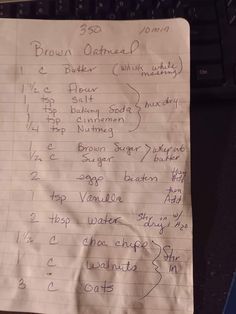 350 10 min
Brown Oatmeal
1 c Butter (whisk while
melting)
1 1/2 c Flour
1 tsp salt
1 tsp baking soda
1 tsp cinnamon
1/4 tsp Nutmeg
mix dry
1 c Brown Sugar
1/2 c Sugar
whip w/
butter
2 eggs beaten
then
Add
1 tsp Vanilla
2 tbsp water Stir in w/
dry / H2O
1 1/2 c choc chips
1 c walnuts
3 c oats
Stir
in